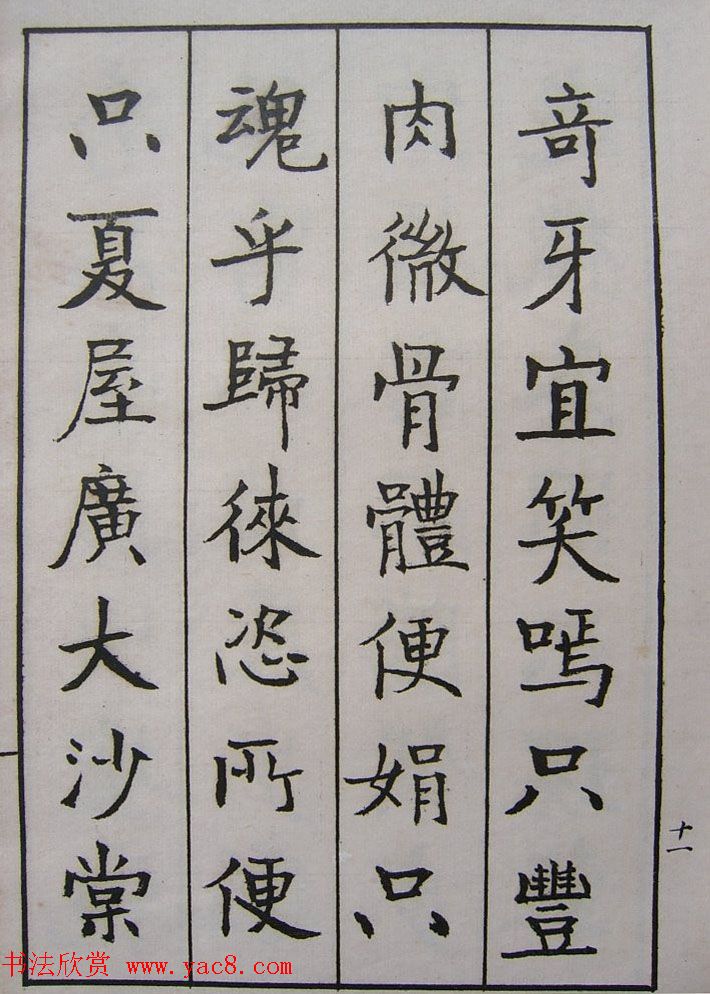 奇牙宜笑嘕只豐
肉微骨體便娟只
魂乎歸徠恣所便
只夏屋廣大沙棠
十一
书法欣赏 www.yac8.com